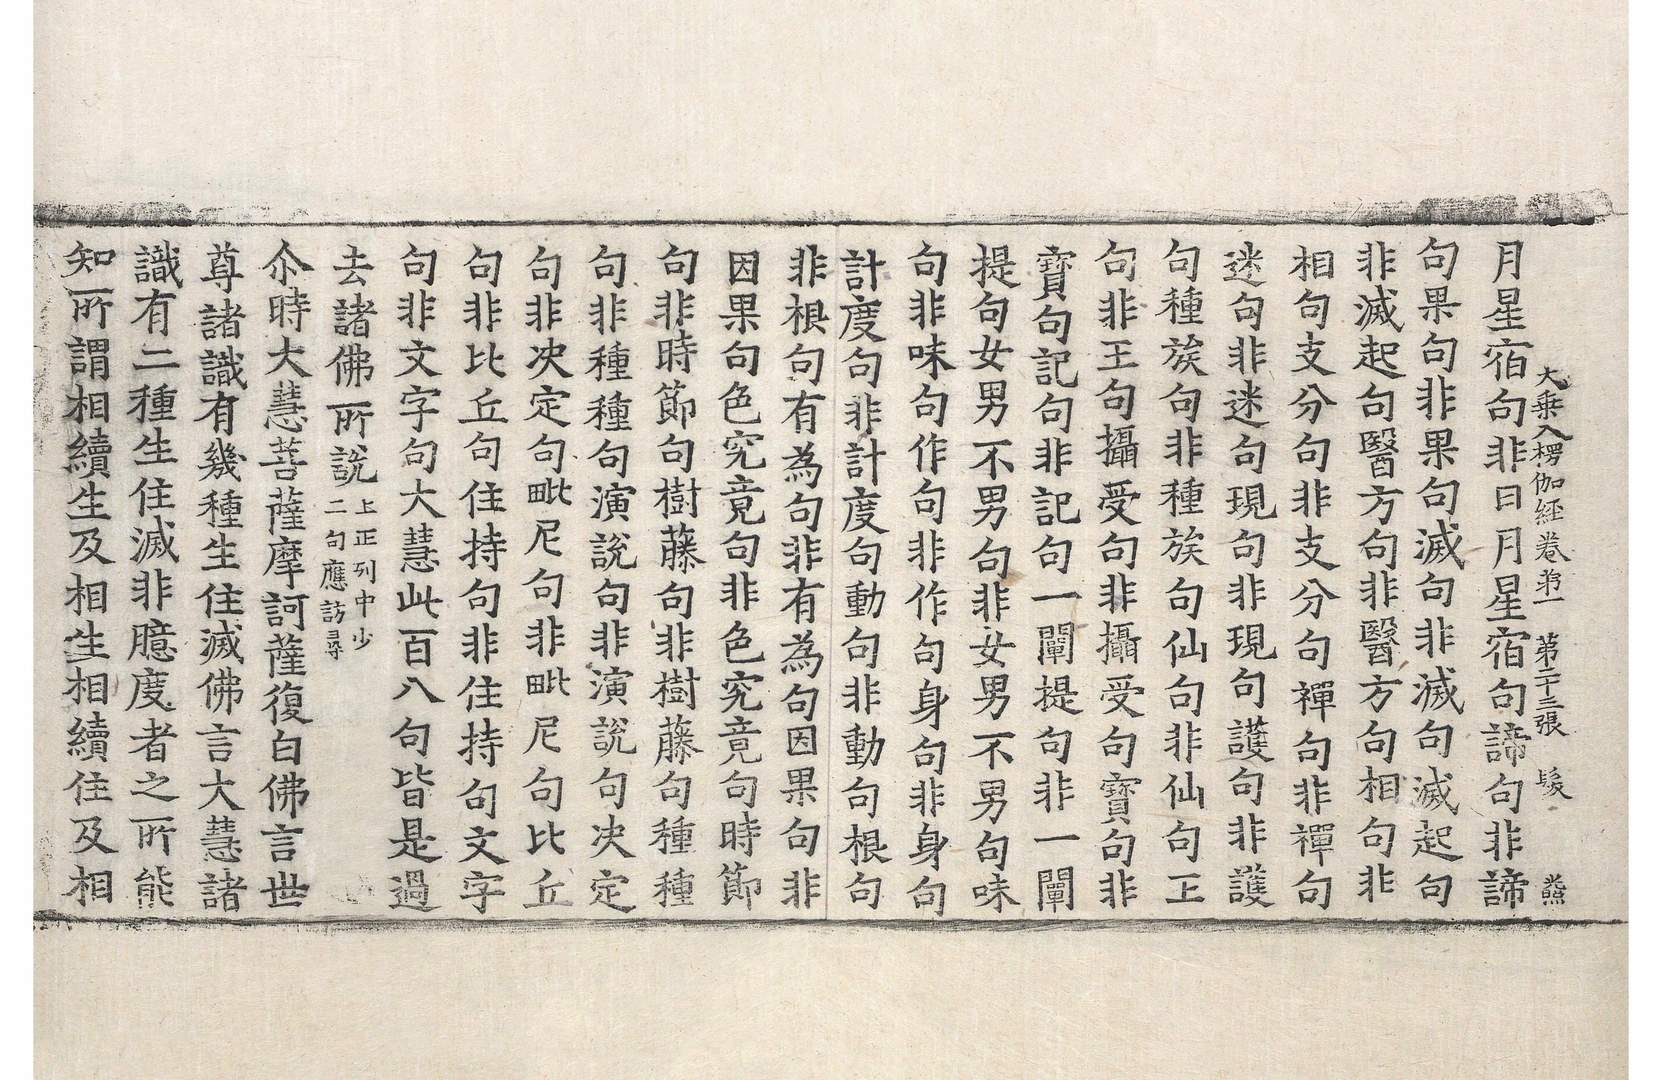 大乘入楞伽經卷苐一　第二十三張　髮　㷱
月星宿句非日月星宿句諦句非諦
句果句非果句滅句非滅句滅起句
非滅起句醫方句非醫方句相句非
相句支分句非支分句禪句非禪句
迷句非迷句現句非現句護句非護
句種族句非種族句仙句非仙句王
句非王句攝受句非攝受句寶句非
寶句記句非記句一闡提句非一闡
提句女男不男句非女男不男句味
句非味句作句非作句身句非身句
計度句非計度句動句非動句根句
非根句有為句非有為句因果句非
因果句色究竟句非色究竟句時節
句非時節句樹藤句非樹藤句種種
句非種種句演說句非演說句决定
句非决定句毗尼句非毗尼句比丘
句非比丘句住持句非住持句文字
句非文字句大慧此百八句皆是過
去諸佛所說上正列中少
二句應訪尋
尒時大慧菩薩摩訶薩復白佛言世
尊諸識有幾種生住滅佛言大慧諸
識有二種生住滅非臆度者之所能
知所謂相續生及相生相續住及相